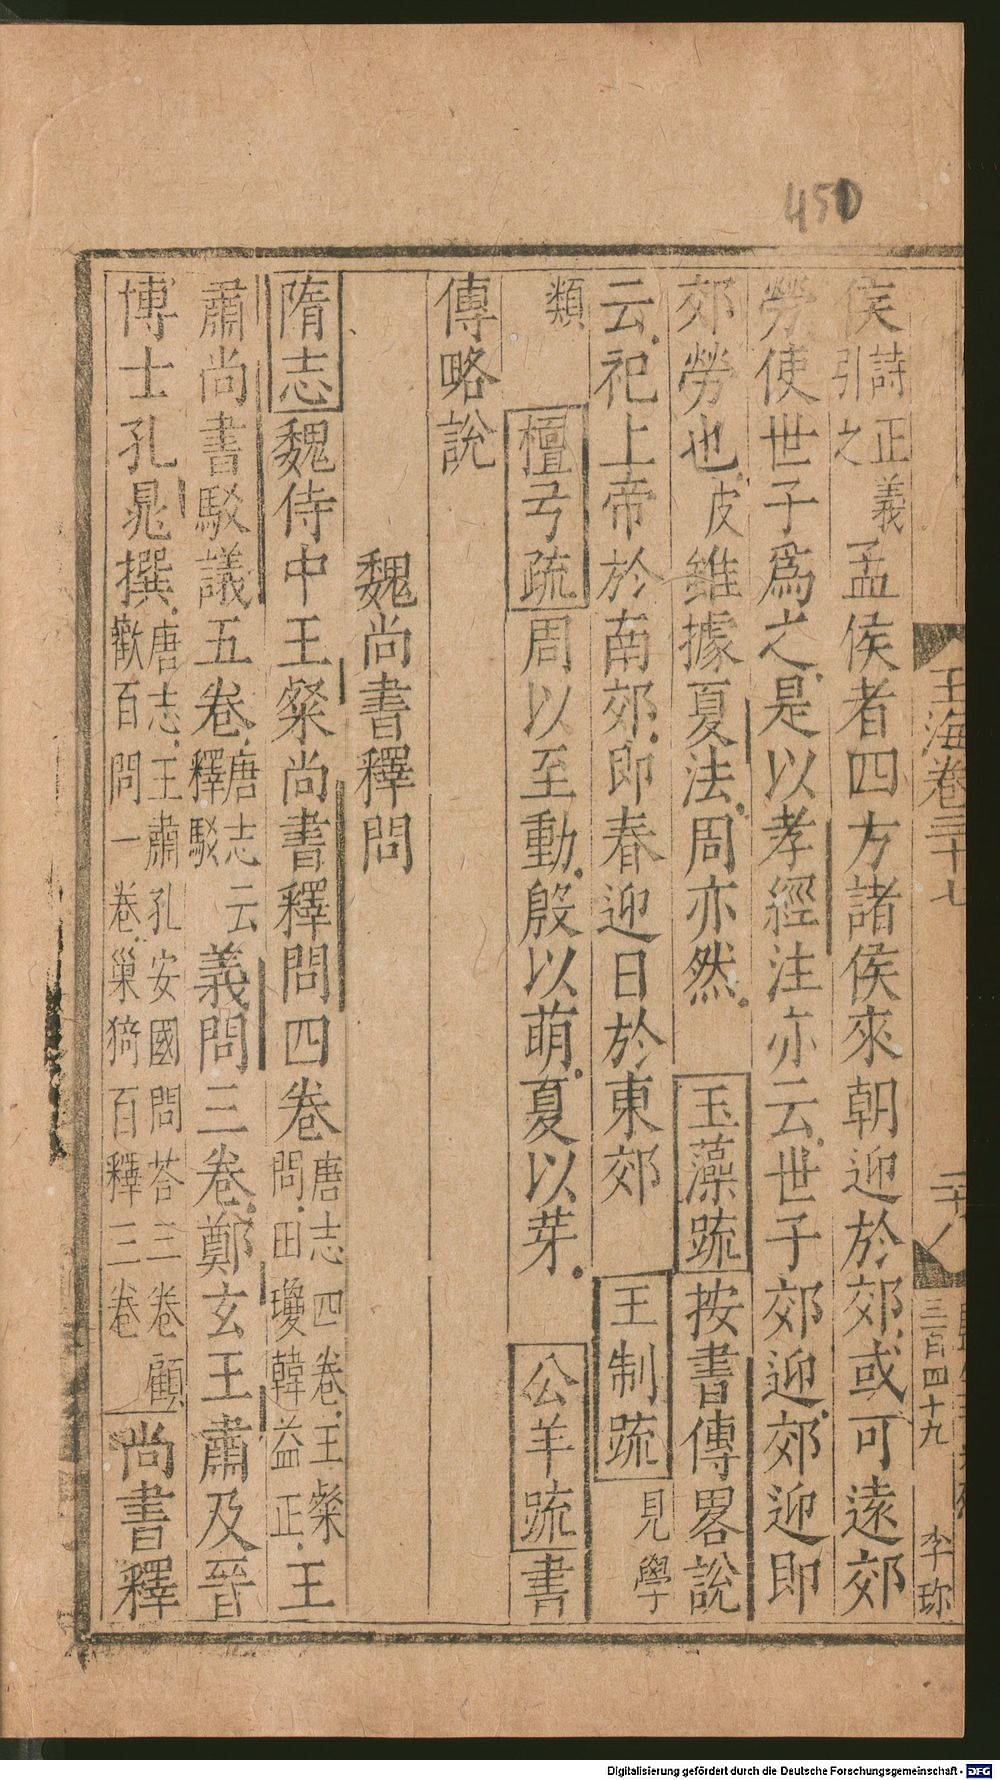 450
玉海卷三十七
二十八
三百四十九
李珎
矦詩正義引之孟侯者四方諸侯來朝迎於郊或可遠郊
勞使世子爲之是以孝經注亦云世子郊迎郊迎即
郊勞也皮雖據夏法周亦然 玉藻疏按書傳畧說
云祀上帝於南郊即春迎日於東郊 王制疏見學
類 檀弓疏周以至動殷以萌夏以芽 公羊疏書
傳略說
魏尚書釋問
隋志魏侍中王粲尚書釋問四卷唐志四卷王粲問田瓊韓益正王
肅尚書駁議五卷唐志云釋駁義問三卷鄭玄王肅及晉
博士孔晁撰唐志王肅孔安國問荅三卷顧歡百問一卷巢猗百釋三卷尚書釋
Digitalisierung gefördert durch die Deutsche Forschungsgemeinschaft - DFG